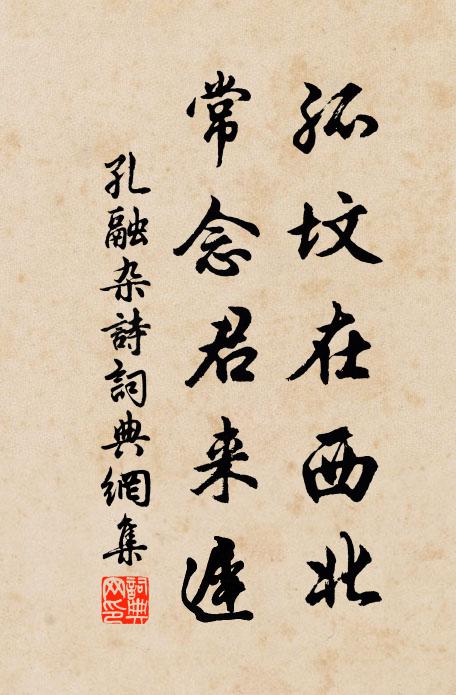 孤坟在西北
常念君来遲
孔融杂詩詞典網集
詞典网印